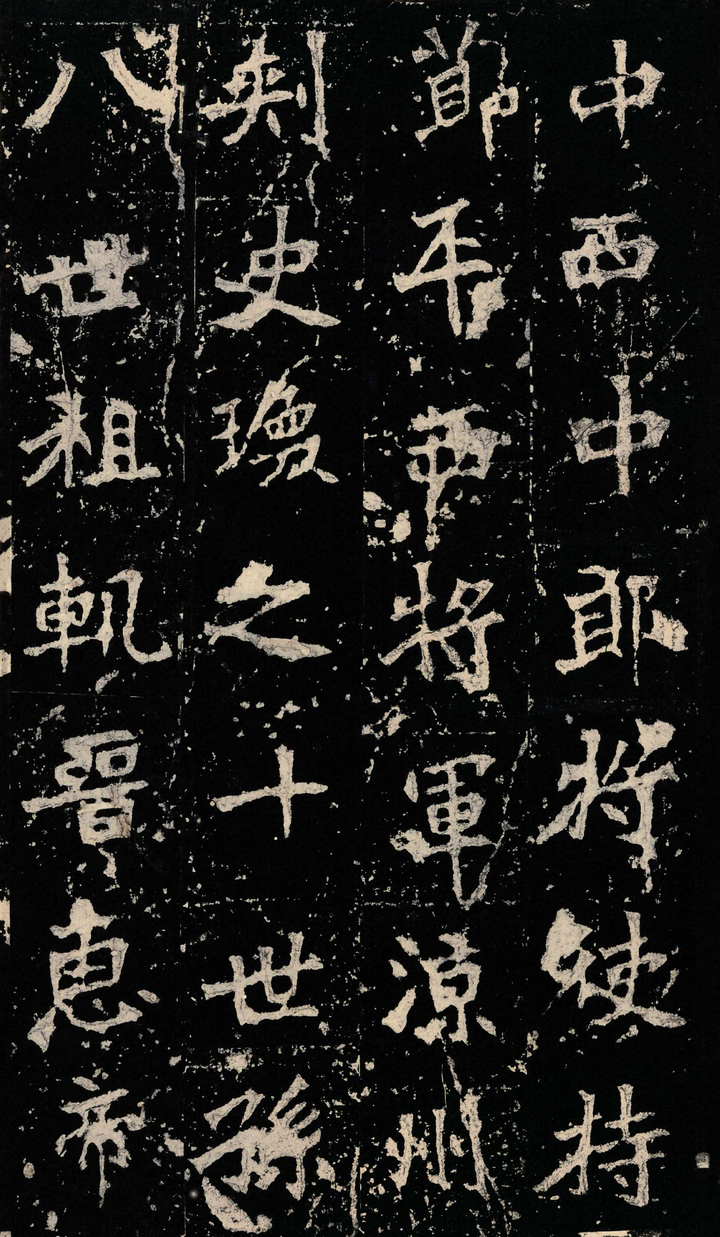 中西中郎將使持
節平西將軍涼州
刺史瑍之十世孫
八世祖軌晉惠帝